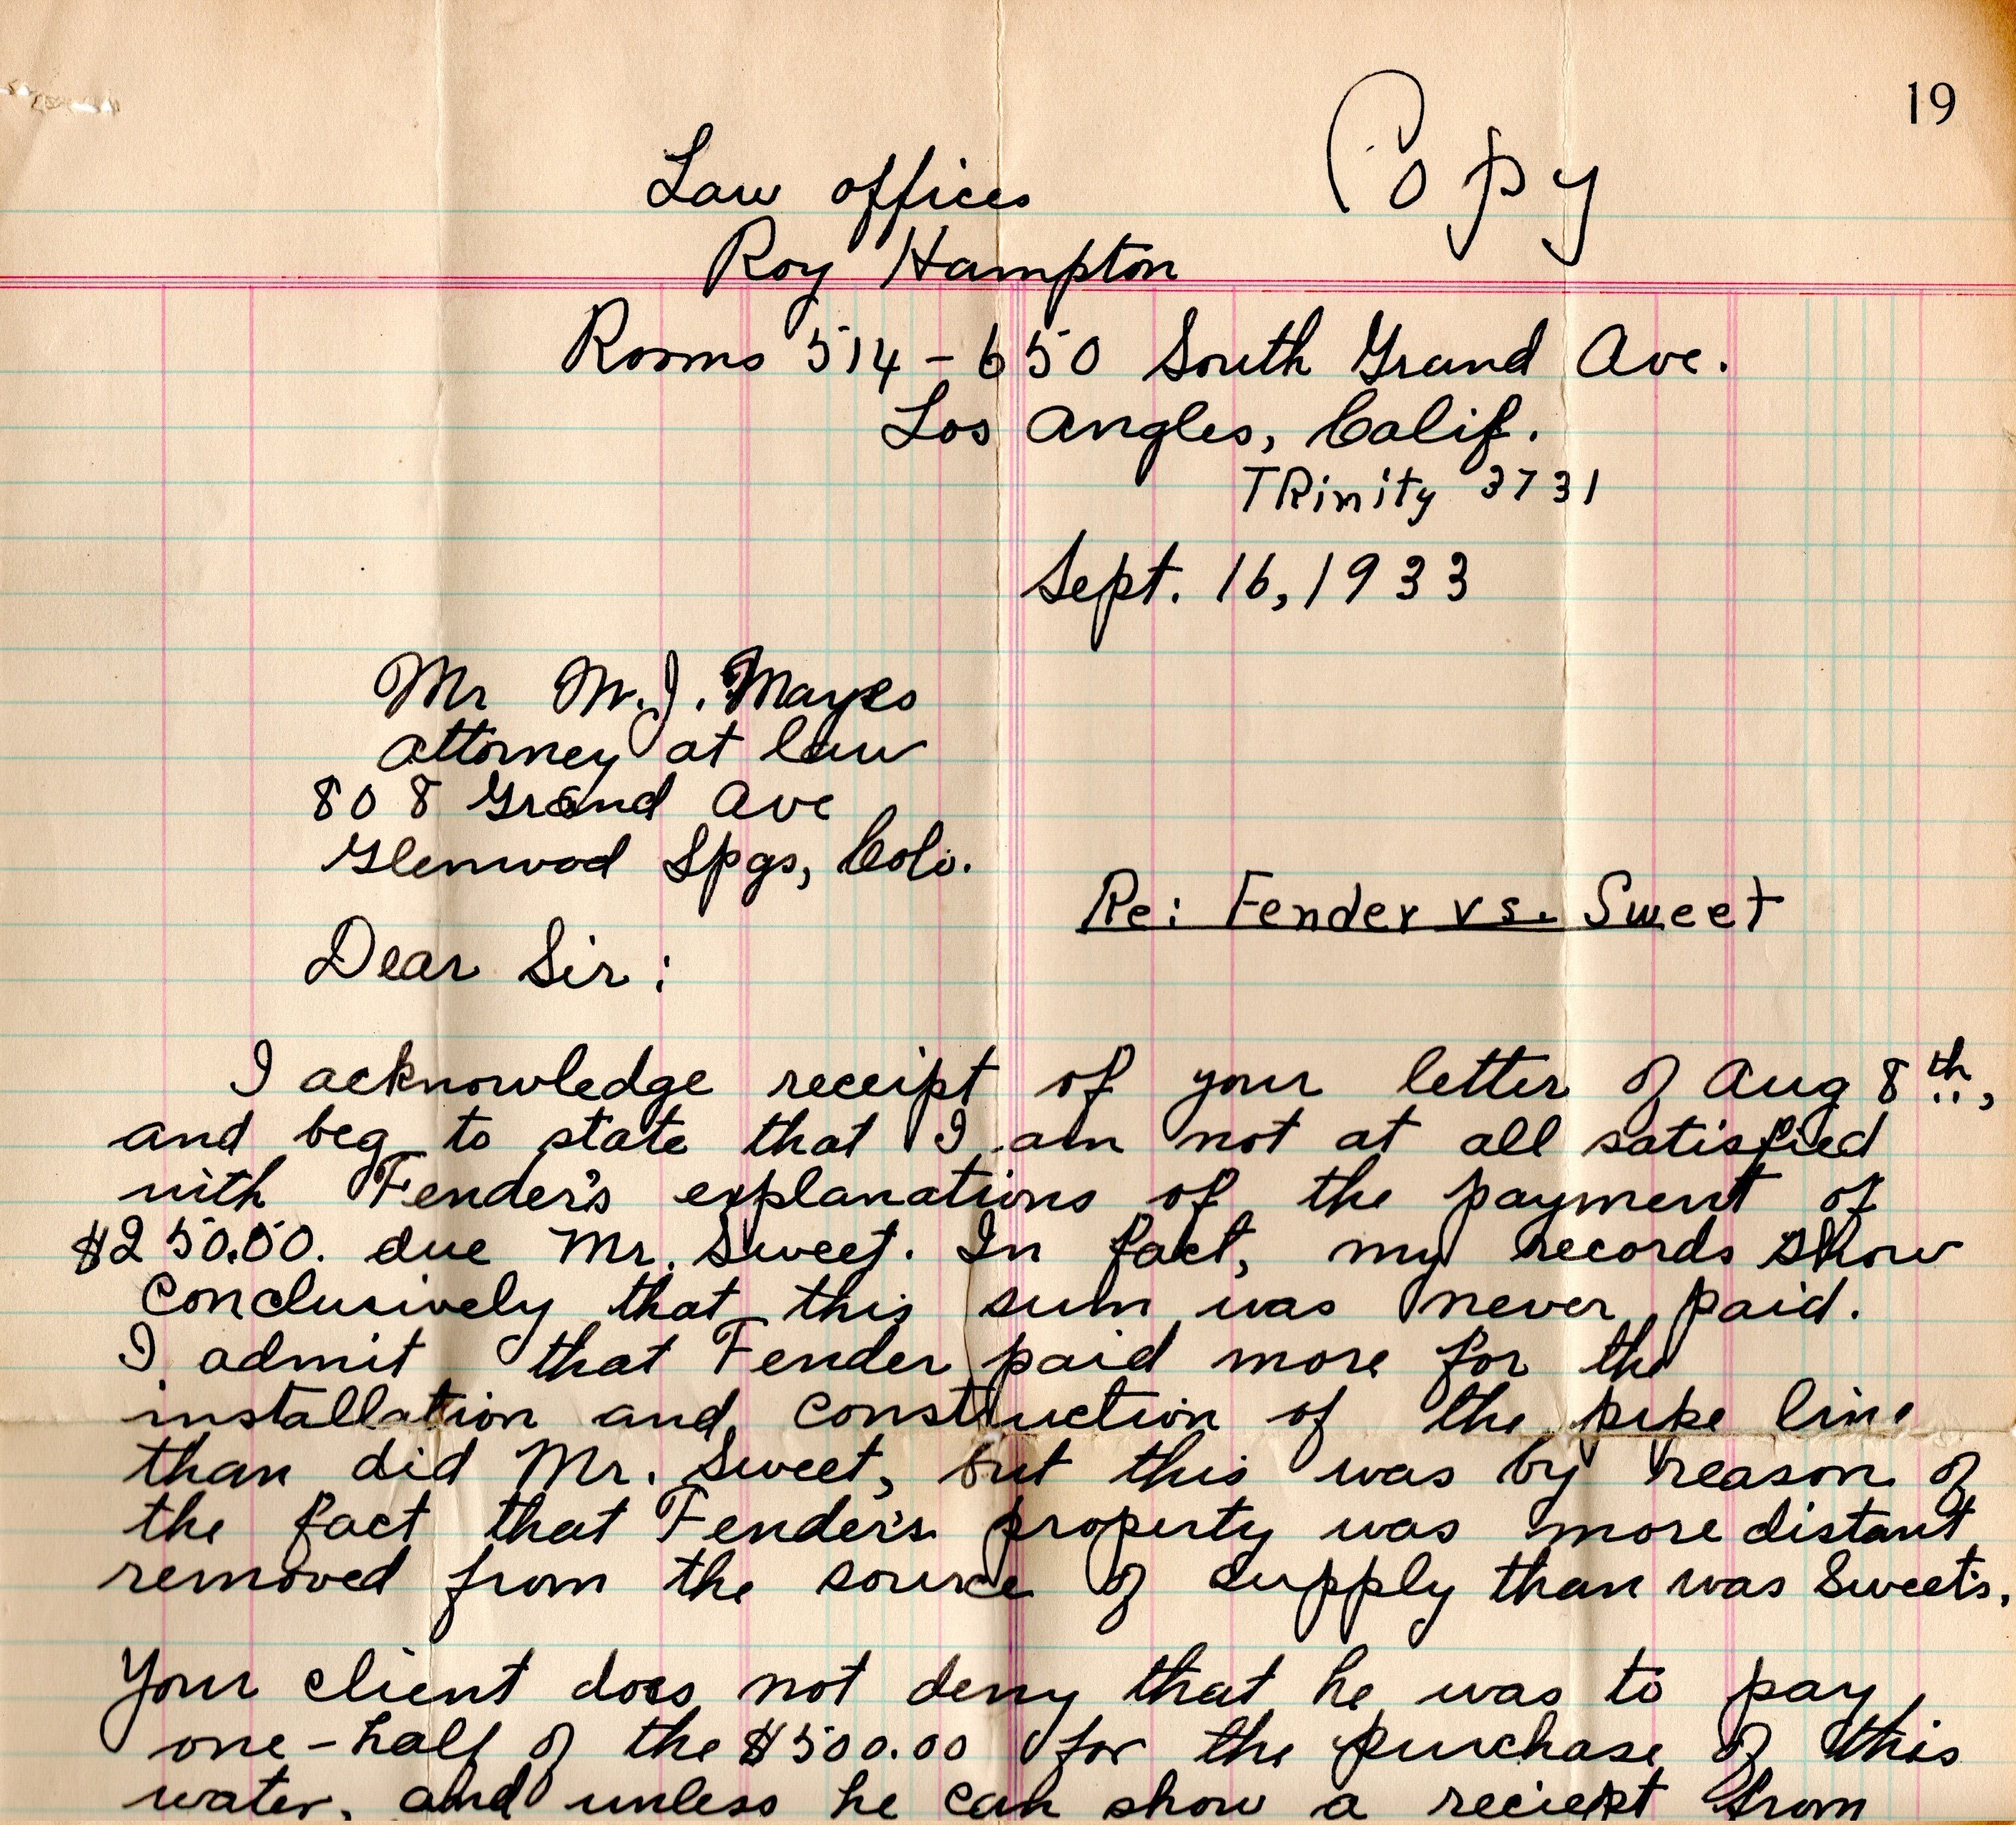 19
Copy
Law offices
Roy Hampton
Rooms 514 - 650 South Grand Ave.
Los Angles, Calif.
TRinity 3731
Sept. 16, 1933
Mr M.J. Mayes
Attorney at law
808 Grand Ave
Glenwood Spgs, Colo.
Re: Fender vs. Sweet
Dear Sir:
I acknowledge receipt of your letter of Aug 8th,
and beg to state that I am not at all satisfied
with Fender's explanations of the payment of
$250.00. due Mr. Sweet. In fact, my records show
conclusively that this sum was never paid.
I admit that Fender paid more for the
installation and construction of the pipe line
than did Mr. Sweet, but this was by reason of
the fact that Fender's property was more distant
removed from the source of supply than was Sweet's.
Your client does not deny that he was to pay
one-half of the $500.00 for the purchase of this
water, and unless he can show a reciept from